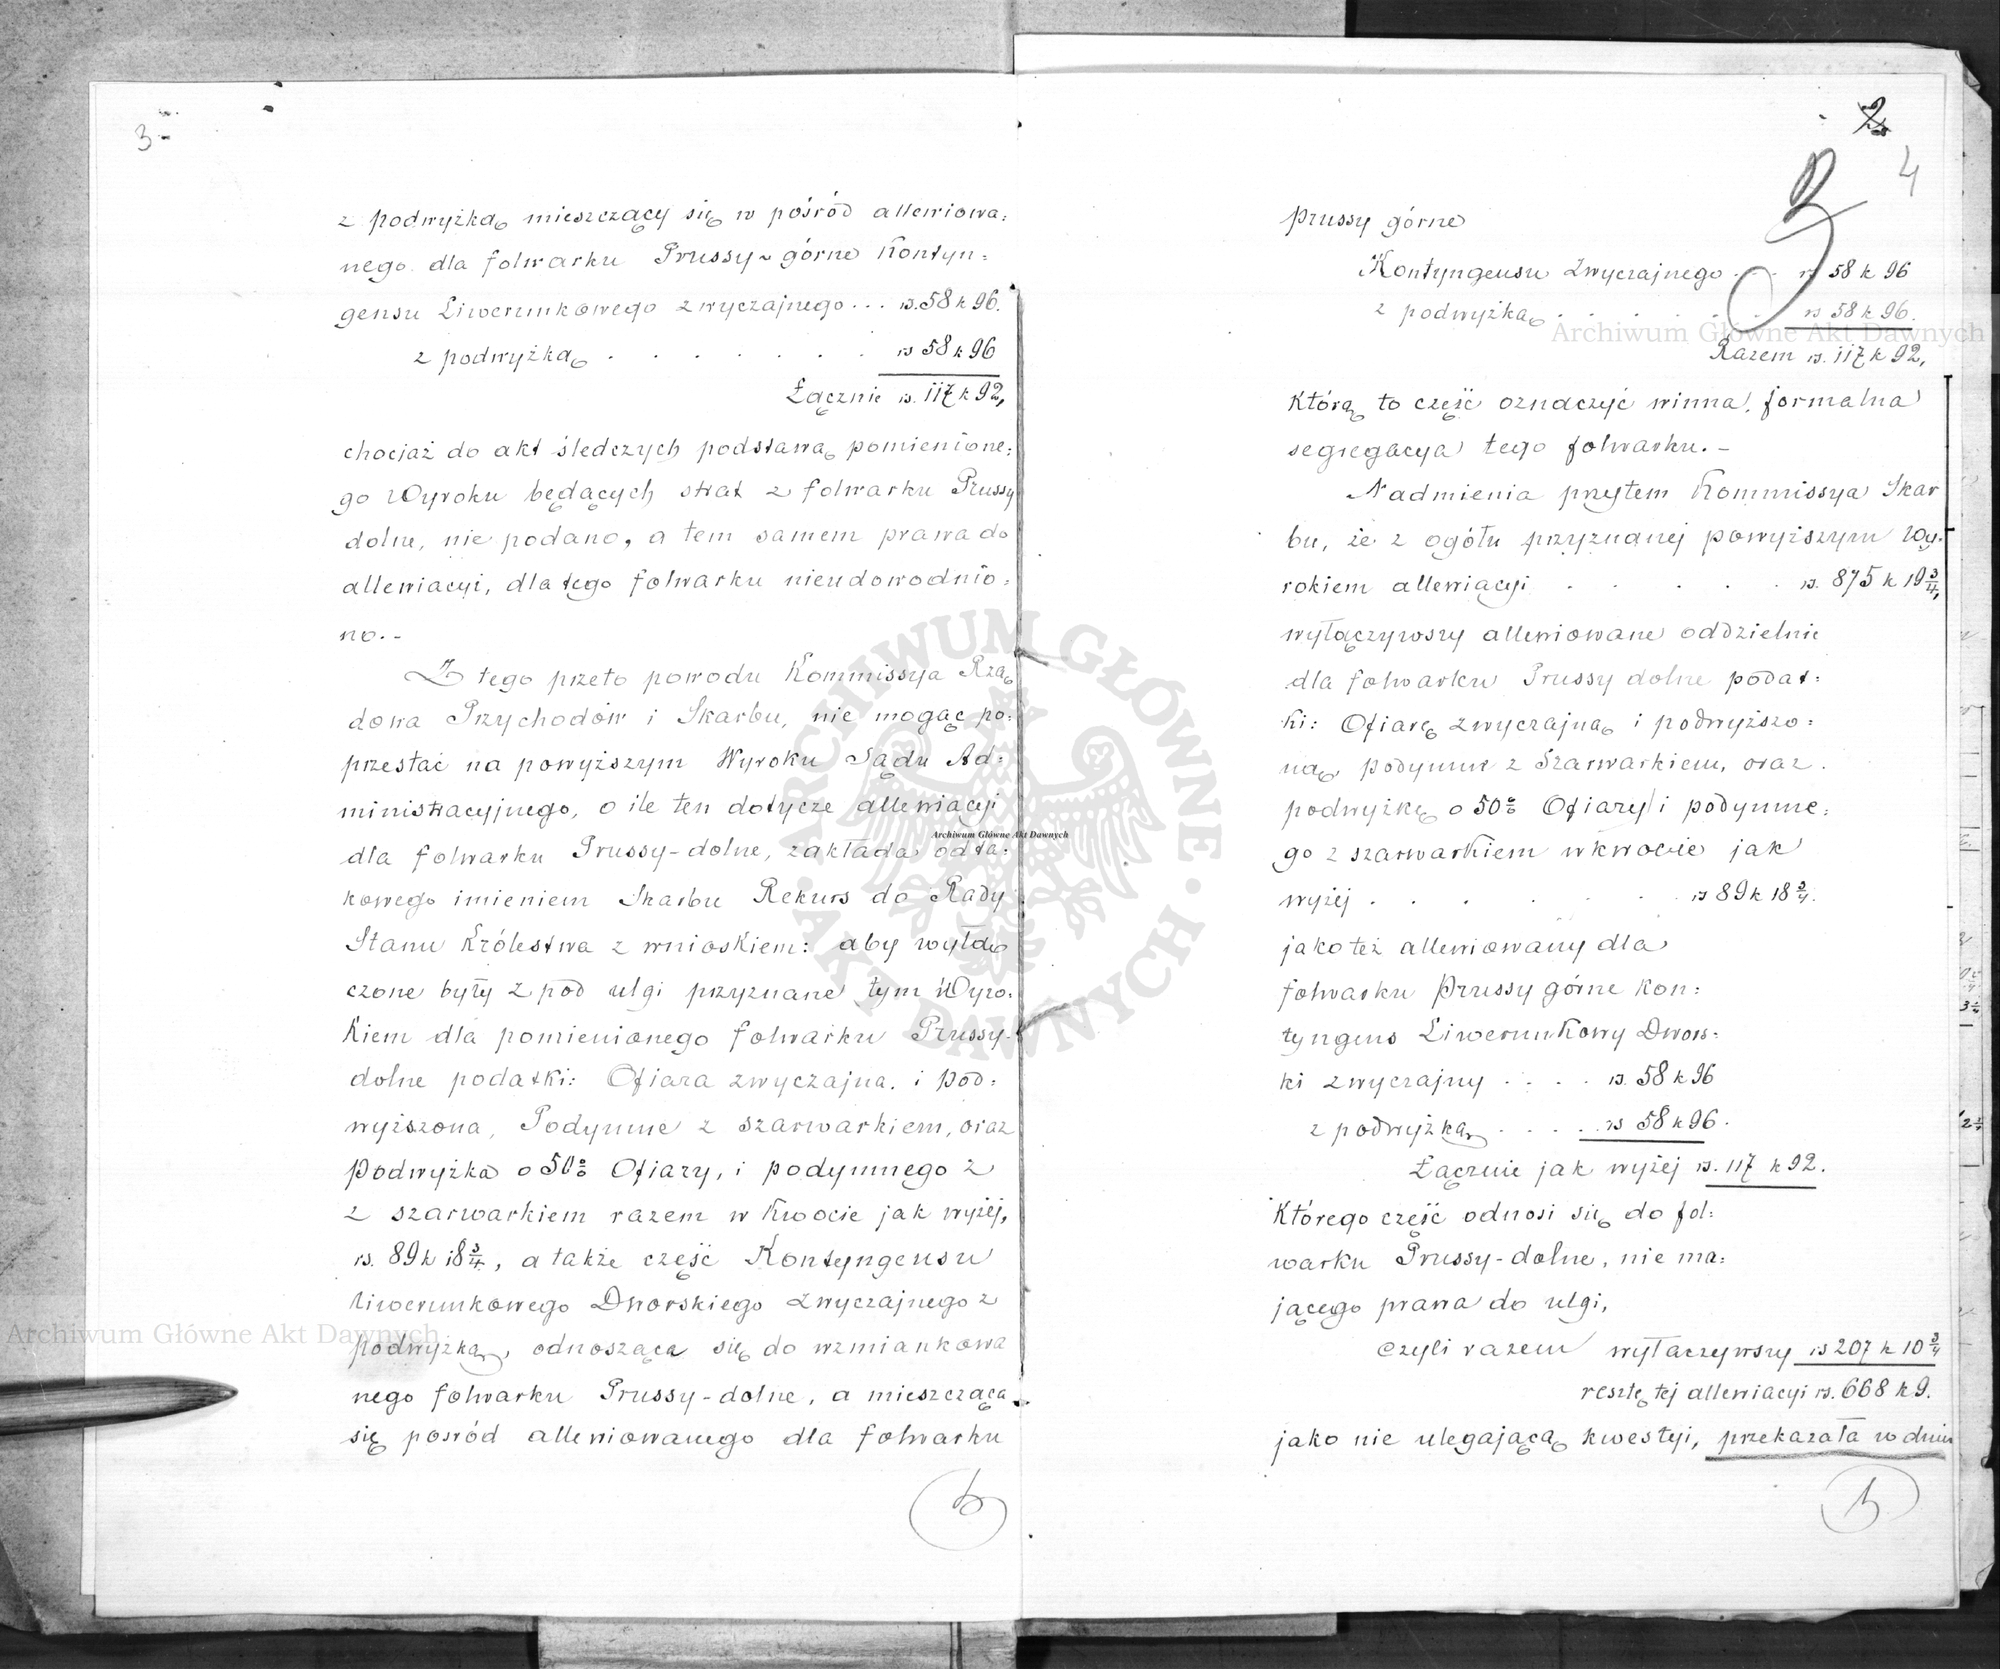 3
z podwyżką mieszczący się w pośród allewiowa:
nego dla folwarku Prussy~górne Kontyn:
gensu Liwerunkowego zwyczajnego... rs. 58 k 96.
z podwyżką . . . . . . . rs 58 k 96
Łącznie rs. 117 k 92,
chociaż do akt śledczych podstawą pomienione:
go Wyroku będących strat z folwarku Prussy
dolne, nie podano, a tem samem prawa do
allewiacyi, dla tego folwarku nieudowodnio:
no.-
Z tego przeto powodu Kommissya Rzą
dowa Przychodów i Skarbu, nie mogąc po:
przestać na powyższym Wyroku Sądu Ad:
ministracyjnego, o ile ten dotycze allewiacyi
dla folwarku Prussy-dolne, zakłada od ta:
kowego imieniem Skarbu Rekurs do Rady
Stanu Królestwa z wnioskiem: aby wyłą
czone były z pod ulgi przyznane tym Wyro:
kiem dla pomienionego folwarku Prussy-
dolne podatki: Ofiara zwyczajna, i pod:
wyższona, Podymne z szarwarkiem, oraz
Podwyżka o 50% Ofiary, i podymnego z
z szarwarkiem razem w kwocie jak wyżej,
rs. 89 k 18 3/4, a także część Kontyngensu
Liwerunkowego Dworskiego zwyczajnego z
podwyżką, odnosząca się do wzmiankowa
nego folwarku Prussy-dolne, a mieszcząca
się pośród allewiowanego dla folwarku
2
3
4
Prussy górne
Kontyngensu Zwyczajnego . . . rs 58 k 96
z podwyżką . . . . . . rs 58 k 96.
Razem rs. 117 k 92,
którą to część oznaczyć winna, formalna
segregacya tego folwarku.-
Nadmienia przytem Kommissya Skar
bu, że z ogółu przyznanej powyższym Wy:
rokiem allewiacyi . . . . . rs. 875 k 19 3/4,
wyłączywszy allewiowane oddzielnie
dla folwarku Prussy dolne podat:
ki: Ofiarę zwyczajną i podwyższo:
ną, podymne z Szarwarkiem, oraz
podwyżkę o 50% Ofiary i podymne:
go z szarwarkiem w kwocie jak
wyżej . . . . . . . rs 89 k 18 3/4.
jako też allewiowany dla
folwarku Prussy górne kon:
tyngens Liwerunkowy Dwors:
ki zwyczajny . . . . rs. 58 k 96
z podwyżką . . . . . rs 58 k 96.
Łącznie jak wyżej rs. 117 k 92.
którego część odnosi się do fol:
warku Prussy-dolne, nie ma:
jącego prawa do ulgi,
czyli razem wyłaczywszy rs 207 k 10 3/4
resztę tej allewiacyi rs. 668 k 9.
jako nie ulegającą kwestyi, przekazała w dniu
Archiwum Główne Akt Dawnych
Archiwum Główne Akt Dawnych
Archiwum Główne Akt Dawnych
ARCHIWUM GŁÓWNE · AKT DAWNYCH ·